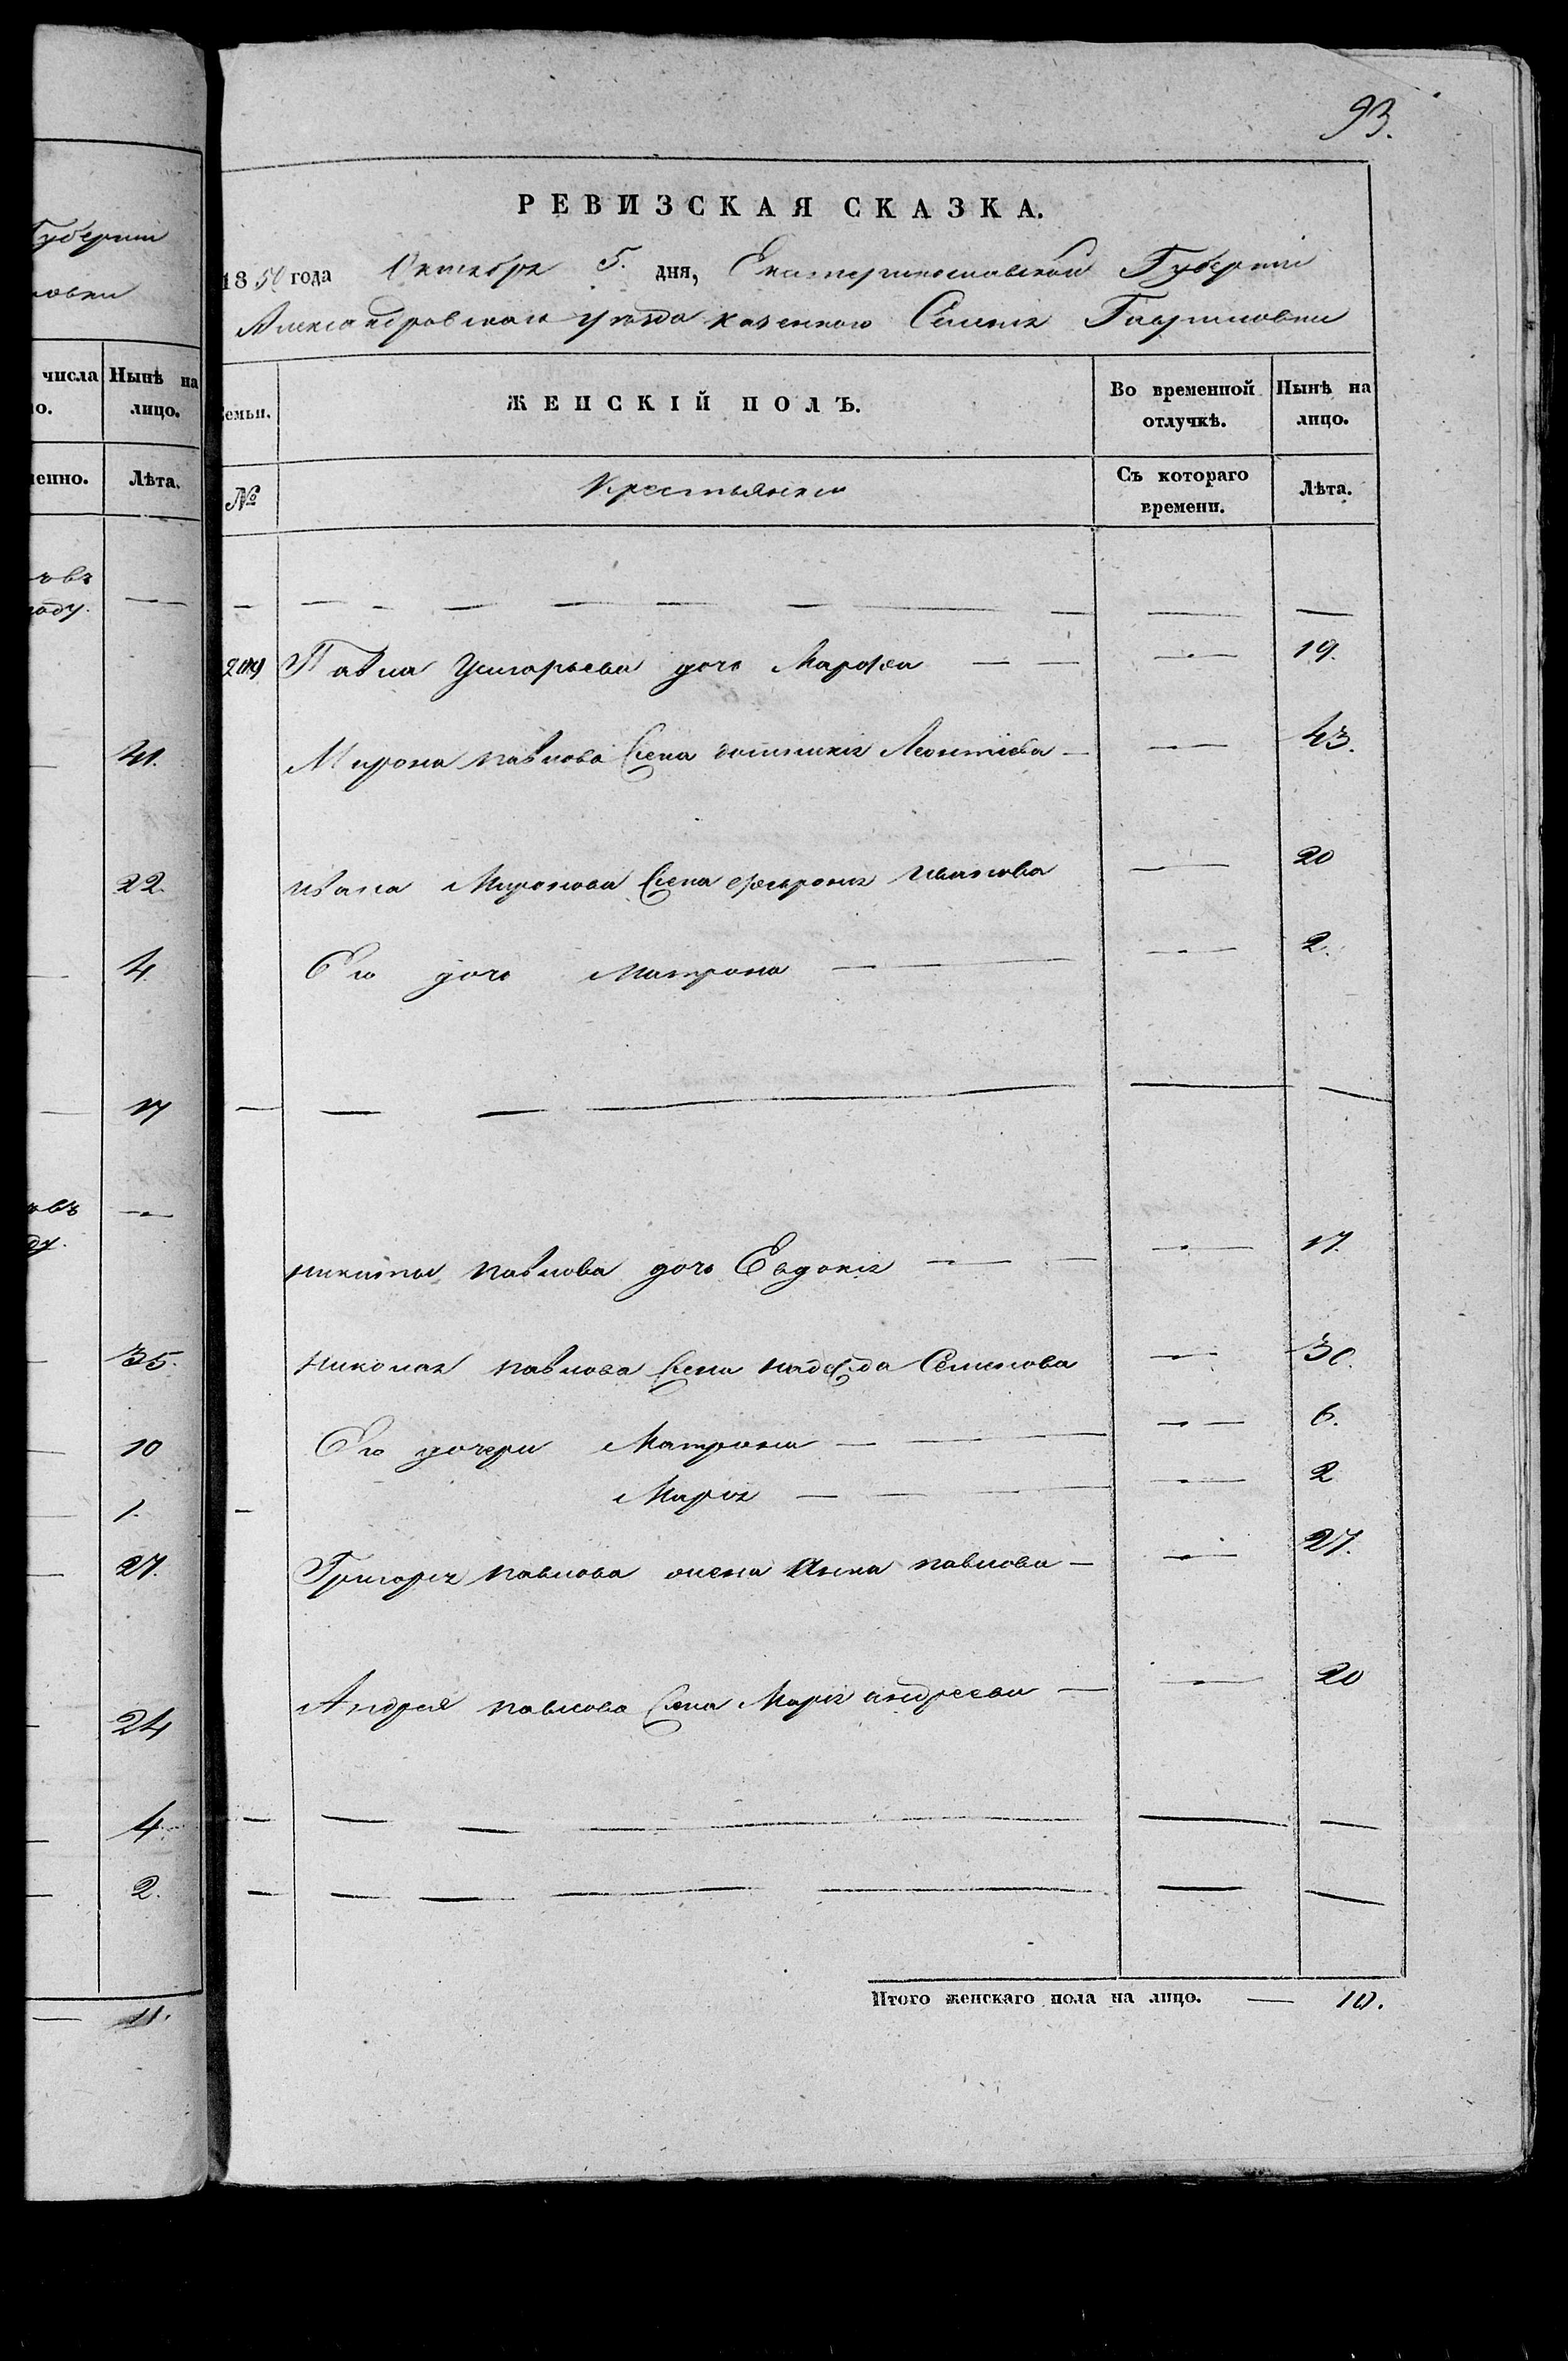 Губерніи
овки
числа
Нынѣ на
лицо.
Лѣта.
41.
22.
4.
17
35.
10
1.
27.
24
4.
2.
11.
93.
РЕВИЗСКАЯ СКАЗКА.
1850 года Октября 5. дня, Екатеринославской Губерніи
Александровскаго уѣзда казеннаго Селенія Гавриловки
Семьи.
ЖЕНСКІЙ ПОЛЪ.
Во временной
отлучкѣ.
Нынѣ на
лицо.
№
Крестьянки
Съ котораго
времени.
Лѣта.
Павла Григорьева дочь Марфа — — 19.
Мирона павлова Жена Леонтіева — 43.
ивана Миронова Жена ефросинія Иванова 20
Его дочь Матрона — 2.
никиты павлова дочь Евдокія — 17.
николая павлова Жена надежда Семенова 30.
Его дочери Матрона — 6.
Марія — 2
Григорія павлова жена Анна павлова — 27.
Андрея павлова Жена Марія андреева — 20
Итого женскаго пола на лицо. — 10.